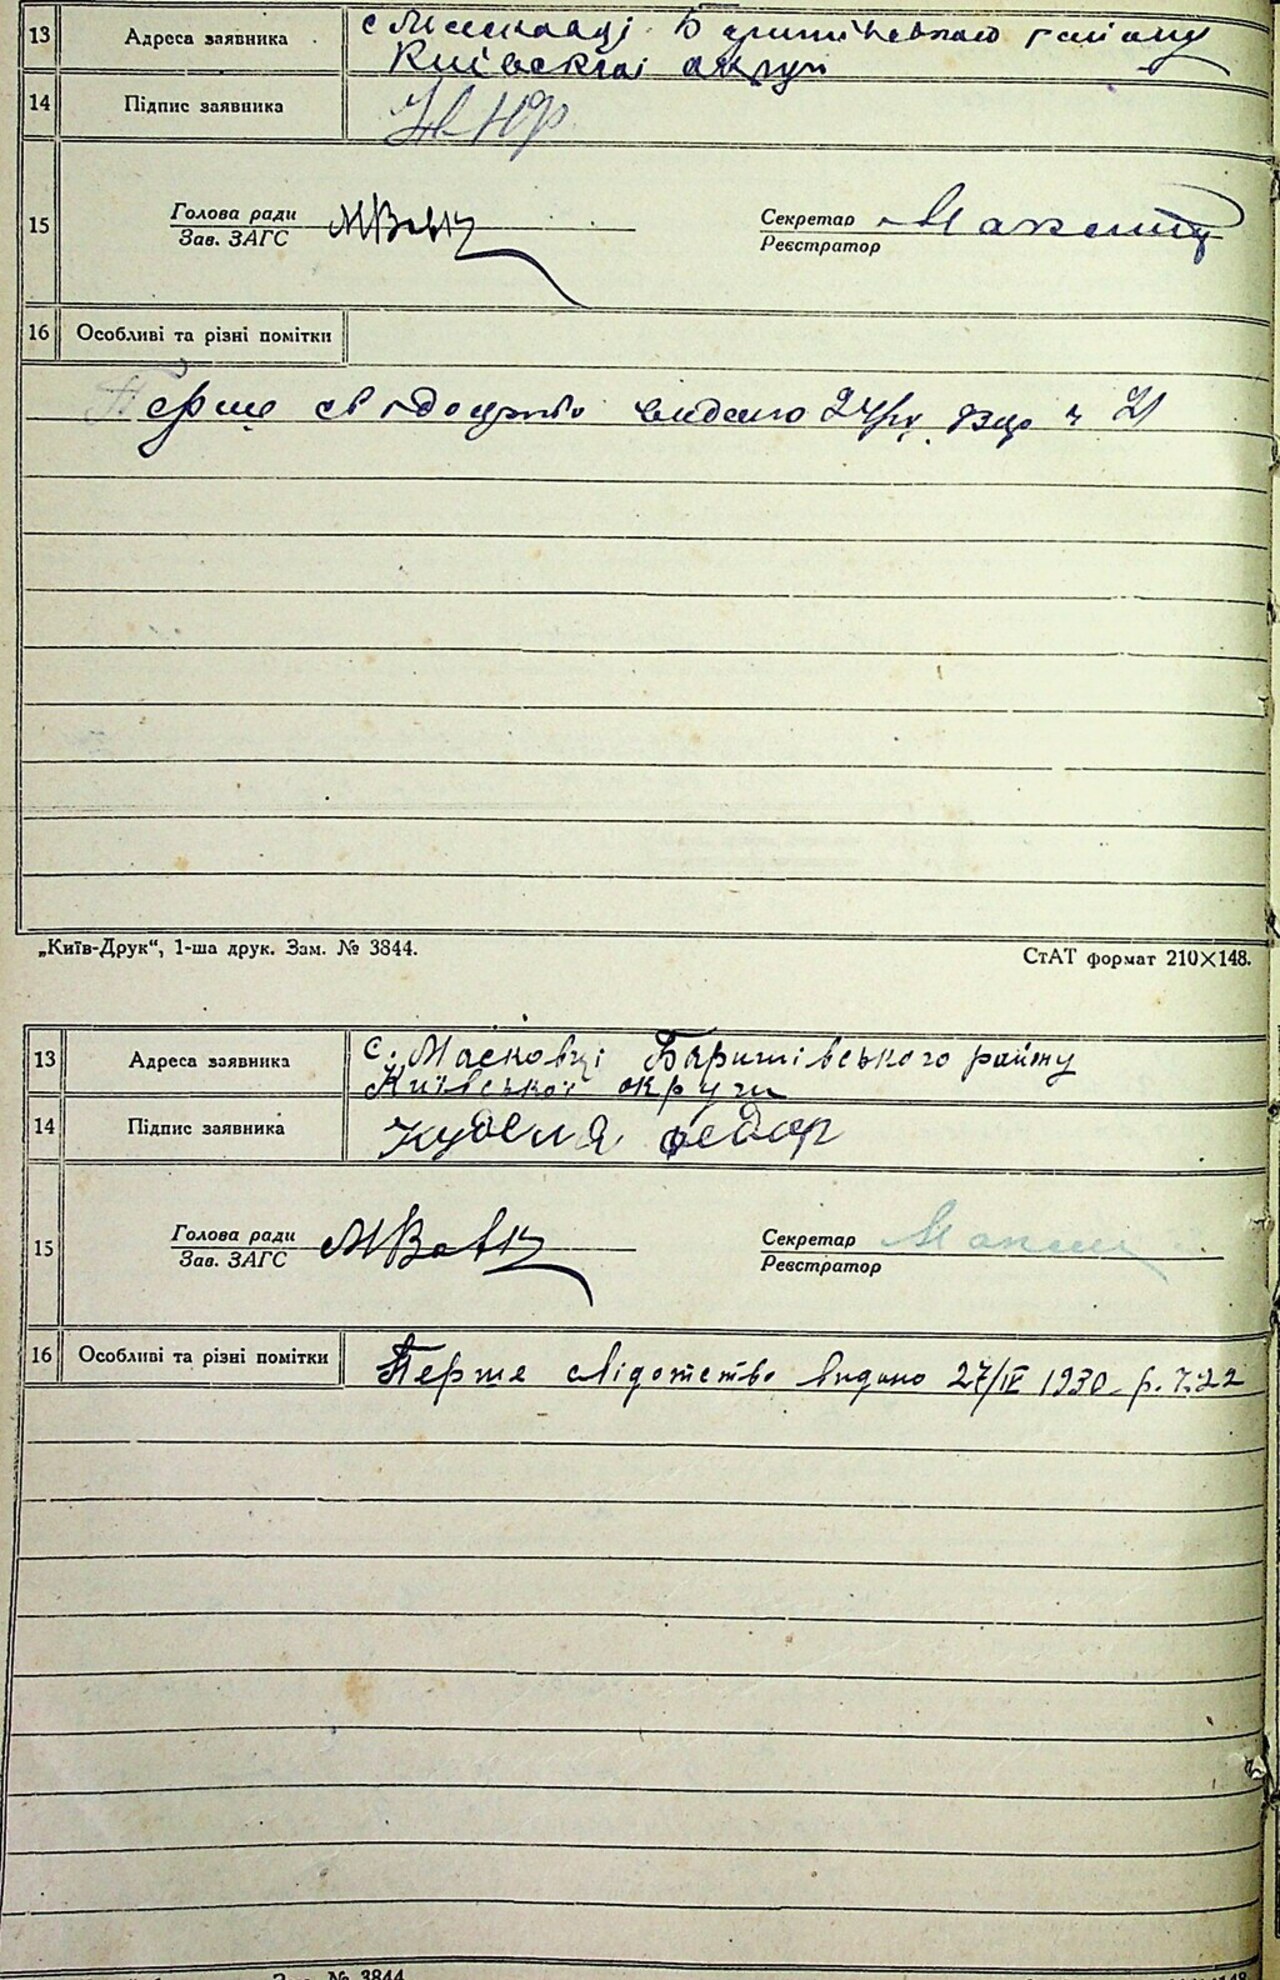 13 Адреса заявника с Масковці Баришівського району
Київскої округи
14 Підпис заявника
15 Голова ради МВовк Секретар
Зав. ЗАГС Реєстратор
16 Особливі та різні помітки
Перше свідоцтво видано 24/IV 21
„Київ-Друк“, 1-ша друк. Зам. № 3844. СтАТ формат 210×148.
13 Адреса заявника с. Масковці Баришівського району
Київської округи
14 Підпис заявника Кубеля Федор
15 Голова ради МВовк Секретар
Зав. ЗАГС Реєстратор
16 Особливі та різні помітки Перше свідотство видано 27/IV 1930 р. ч. 22
№ 3844